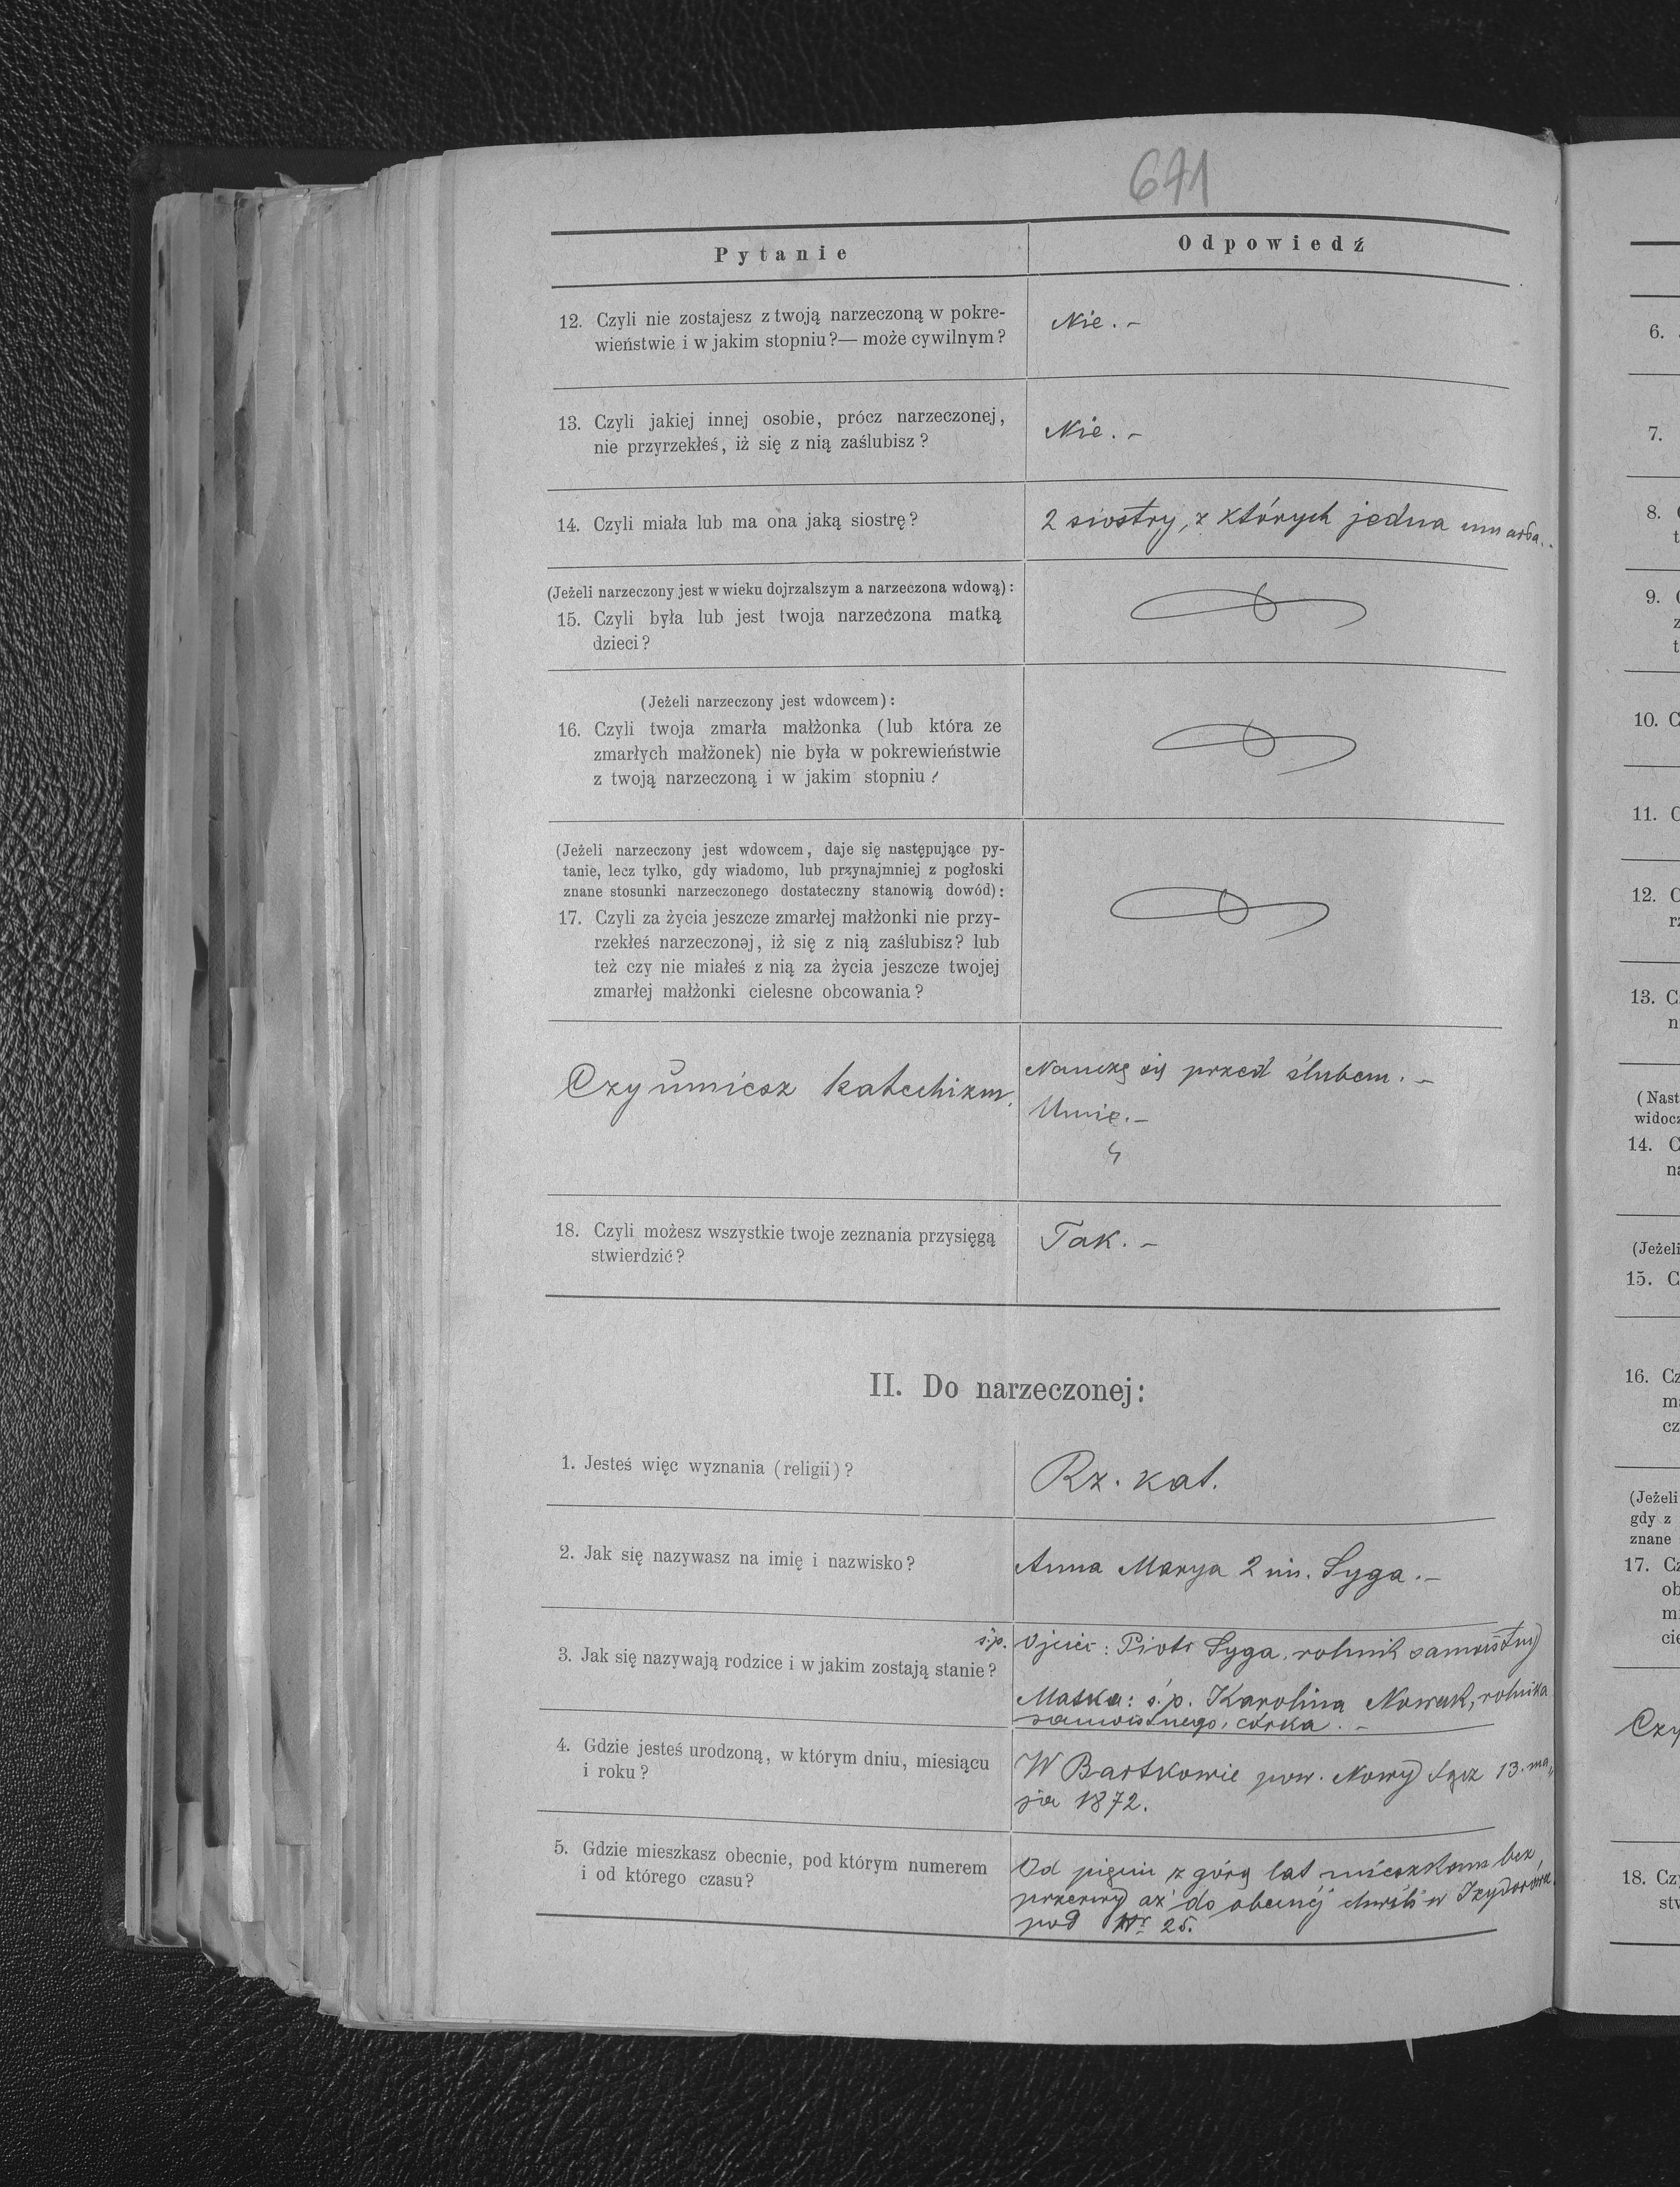 671
Pytanie
Odpowiedź
12. Czyli nie zostajesz z twoją narzeczoną w pokre-
wieństwie i w jakim stopniu?— może cywilnym?
Nie. –
13. Czyli jakiej innej osobie, prócz narzeczonej,
nie przyrzekłeś, iż się z nią zaślubisz?
Nie. –
14. Czyli miała lub ma ona jaką siostrę?
2 siostry, z których jedna umarła. –
(Jeżeli narzeczony jest w wieku dojrzalszym a narzeczona wdową):
15. Czyli była lub jest twoja narzeczona matką
dzieci?
(Jeżeli narzeczony jest wdowcem):
16. Czyli twoja zmarła małżonka (lub która ze
zmarłych małżonek) nie była w pokrewieństwie
z twoją narzeczoną i w jakim stopniu?
(Jeżeli narzeczony jest wdowcem, daje się następujące py-
tanie, lecz tylko, gdy wiadomo, lub przynajmniej z pogłoski
znane stosunki narzeczonego dostateczny stanowią dowód):
17. Czyli za życia jeszcze zmarłej małżonki nie przy-
rzekłeś narzeczonej, iż się z nią zaślubisz? lub
też czy nie miałeś z nią za życia jeszcze twojej
zmarłej małżonki cielesne obcowania?
Czy umiesz katechizm.
Nauczę się przed ślubem. –
Umię. –
18. Czyli możesz wszystkie twoje zeznania przysięgą
stwierdzić?
Tak. –
II. Do narzeczonej:
1. Jesteś więc wyznania (religii)?
Rz. kat.
2. Jak się nazywasz na imię i nazwisko?
Anna Marya 2 im. Syga. –
3. Jak się nazywają rodzice i w jakim zostają stanie?
ś.p. Ojciec: Piotr Syga, rolnik samoistny
Matka: ś.p. Karolina Nowak, rolnika
samoistnego, córka. –
4. Gdzie jesteś urodzoną, w którym dniu, miesiącu
i roku?
W Bartkowie pow. Nowy Sącz 13. ma„
ja 1872.
5. Gdzie mieszkasz obecnie, pod którym numerem
i od którego czasu?
Od pięciu z górą lat mieszkam bez
przerwy aż do obecnej chwili w Izydorówce
pod Nr 25.
6.
7.
8. C
t
9. C
z
t
10. C
11. C
12. C
rz
13. C
n
(Nast
widocz
14. C
na
(Jeżeli
15. C
16. Cz
ma
cz
(Jeżeli
gdy z
znane
17. Cz
ob
m
cie
Czy
18. Czy
stw